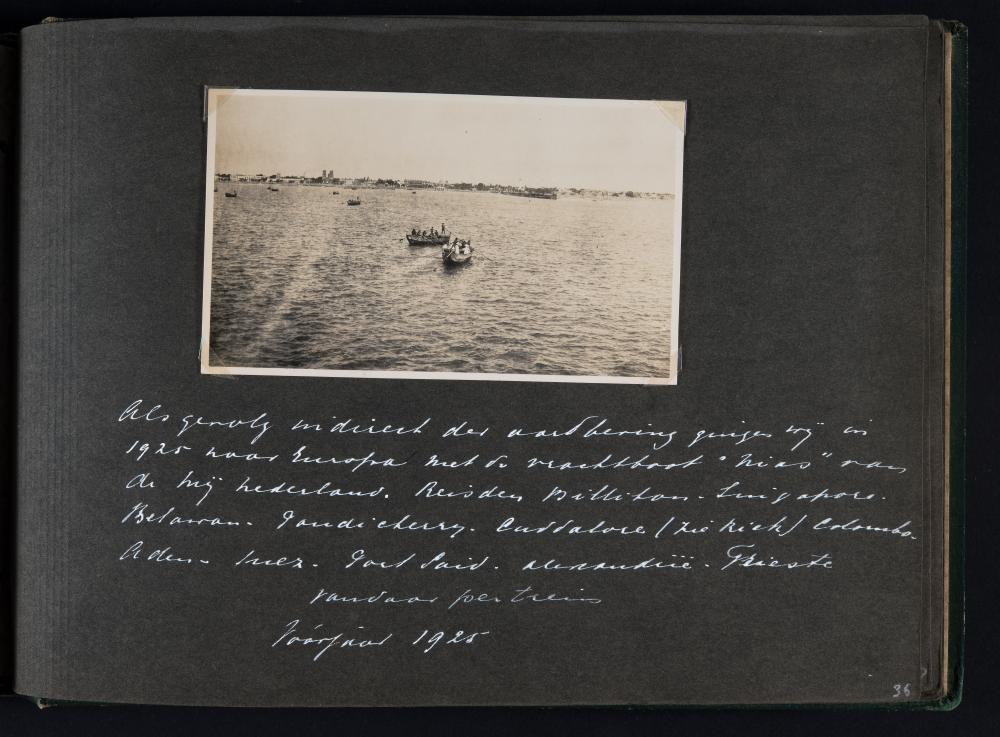 Als gevolg indirect der aardbeving gingen wij in
1925 naar Europa met de vrachtboot "Nias" van
de Mij Nederland. Reisden Billiton - Singapore.
Belawan - Pondicherry. Cuddalore (zie kiek) Colombo.
Aden - Suez. Port Said. Alexandrië - Trieste
vandaar per trein
Vóórjaar 1925
36